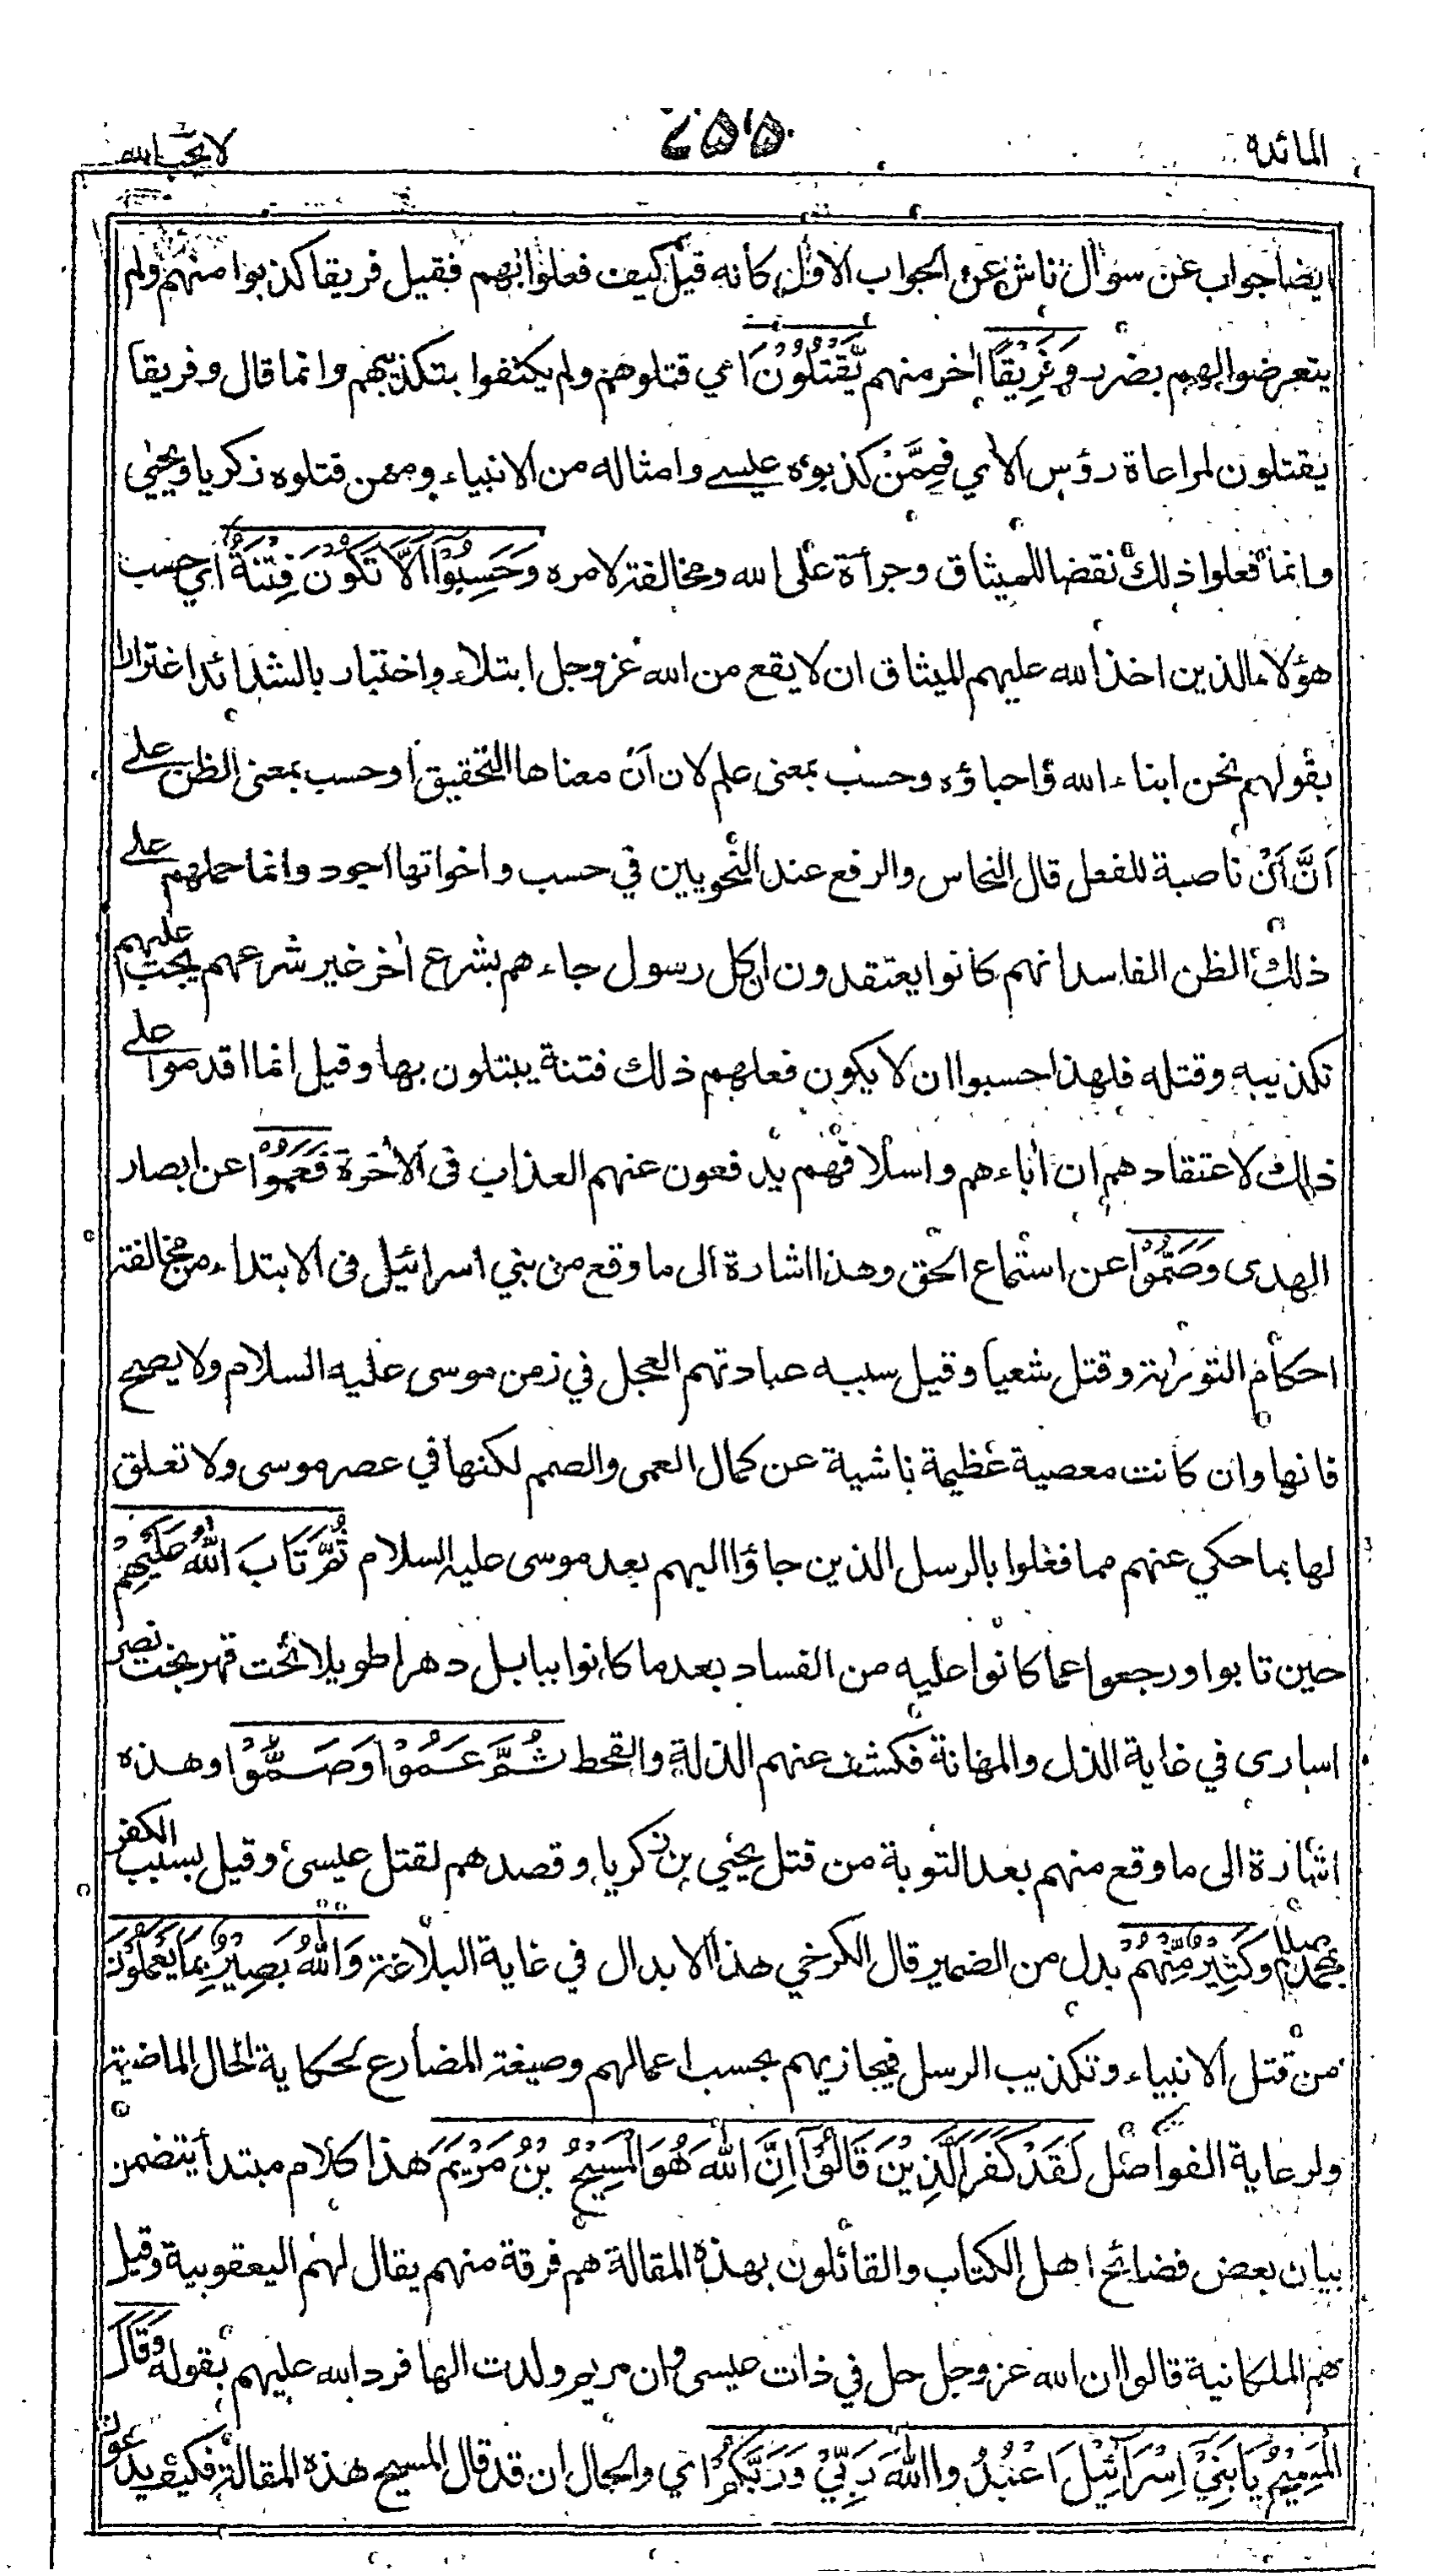 المائدة
٧٥٥
لا يحب الله
ايضا جواب عن سؤال ناش عن الجواب الاول كأنه قيل كيف فعلوا بهم فقيل فريقا كذبوا منهم ولم
يتعرضوا لهم بضرر وَفَرِيْقًا اٰخر منهم يَّقْتُلُوْنَ اي قتلوهم ولم يكتفوا بتكذيبهم وانما قال وفريقا
يقتلون لمراعاة رؤس الاٰي فَمِمَّنْ كذبوه عيسى وامثاله من الانبياء وممن قتلوه زكريا ويحيٰي
وانما فعلوا ذلك نقضا للميثاق وجرأة على الله ومخالفة لامره وَحَسِبُوْٓا اَلَّا تَكُوْنَ فِتْنَةٌ اي حسب
هؤلاء الذين اخذ الله عليهم الميثاق ان لا يقع من الله عز وجل ابتلاء واختبار بالشدائد اغترارا
بقولهم نحن ابناء الله واحباؤه وحسب بمعنى علم لان اَن معناها التحقيق او حسب بمعنى الظن على
اَنَّ اَنْ ناصبة للفعل قال النحاس والرفع عند النحويين في حسب واخواتها اجود وانما حملهم على
ذلك الظن الفاسد انهم كانوا يعتقدون ان كل رسول جاءهم بشرع اٰخر غير شرعهم يجب عليهم
تكذيبه وقتله فلهذا حسبوا ان لا يكون فعلهم ذلك فتنة يبتلون بها وقيل انما اقدموا على
ذلك لاعتقادهم ان اٰباءهم واسلافهم يدفعون عنهم العذاب فى الاٰخرة فَعَمُوْا عن ابصار
الهدى وَصَمُّوْا عن استماع الحق وهذا اشارة الى ما وقع من بني اسرائيل فى الابتداء من مخالفة
احكام التورٰىة وقتل شعيا وقيل سببه عبادتهم العجل في زمن موسى عليه السلام ولا يصح
فانها وان كانت معصية عظيمة ناشية عن كمال العمى والصمم لكنها في عصر موسى ولا تعلق
لها بما حكي عنهم مما فعلوا بالرسل الذين جاؤا اليهم بعد موسى عليه السلام ثُمَّ تَابَ اللّٰهُ عَلَيْهِمْ
حين تابوا ورجعوا عما كانوا عليه من الفساد بعد ما كانوا ببابل دهرا طويلا تحت قهر بخت نصر
اسارى في غاية الذل والمهانة فكشف عنهم الذلة والقحط ثُمَّ عَمُوْا وَصَمُّوْا وهذه
اشارة الى ما وقع منهم بعد التوبة من قتل يحيٰي بن زكريا وقصدهم لقتل عيسى وقيل بسبب الكفر
بمحمد صلم وَكَثِيْرٌ مِّنْهُمْ بدل من الضمير قال الكرخي هذا الابدال في غاية البلاغة وَاللّٰهُ بَصِيْرٌ بِمَا يَعْمَلُوْنَ
من قتل الانبياء وتكذيب الرسل فيجازيهم بحسب اعمالهم وصيغة المضارع لحكاية الحال الماضية
ولرعاية الفواصل لَقَدْ كَفَرَ الَّذِيْنَ قَالُوْٓا اِنَّ اللّٰهَ هُوَ الْمَسِيْحُ بْنُ مَرْيَمَ هذا كلام مبتدأ يتضمن
بيان بعض فضائح اهل الكتاب والقائلون بهذه المقالة هم فرقة منهم يقال لهم اليعقوبية وقيل
هم الملكانية قالوا ان الله عز وجل حل في ذات عيسى وان مريم ولدت الها فرد الله عليهم بقوله وَقَالَ
الْمَسِيْحُ يَا بَنِيْٓ اِسْرَآئِيْلَ اعْبُدُوا اللّٰهَ رَبِّيْ وَرَبَّكُمْ اي والحال ان قد قال المسيح هذه المقالة فكيف يدعون